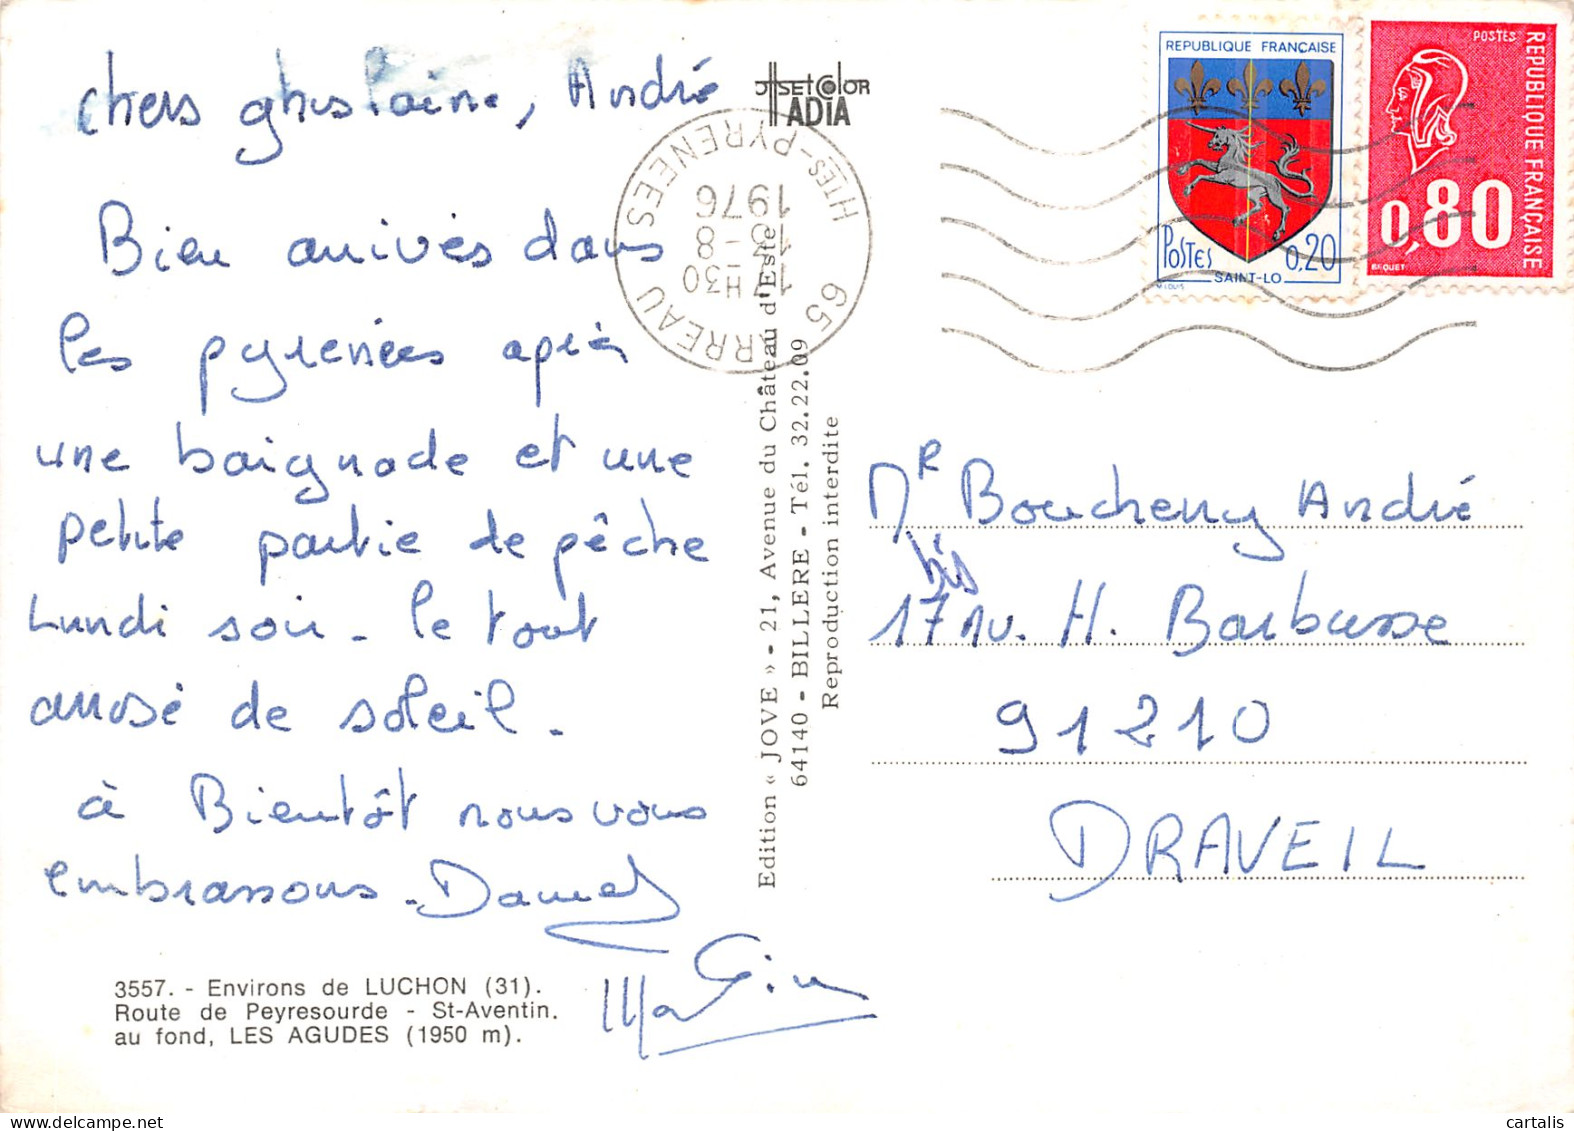 chers ghislaine, André
Bien arrivés dans
les pyrenées après
une baignade et une
petite partie de pêche
Lundi soir - le tout
arrosé de soleil.
à Bientôt nous vous
embrassons.
3557. - Environs de LUCHON (31).
Route de Peyresourde - St-Aventin.
au fond, LES AGUDES (1950 m).
OffsetColor
ADIA
65 ARREAU
HTES-PYRENEES
17H30
13-8
1976
Edition « JOVE » - 21, Avenue du Château d'Este
64140 - BILLERE - Tél. 32.22.09
Reproduction interdite
REPUBLIQUE FRANÇAISE
POSTES 0,20
SAINT-LO
M. LOUIS
POSTES
REPUBLIQUE FRANÇAISE
0,80
BEQUET
Mr Boucheny André
bis
17 Av. H. Barbusse
91210
DRAVEIL
cartalis